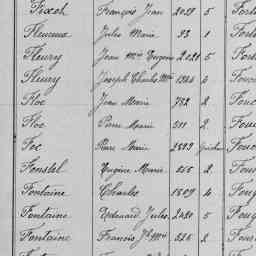 Fixot François Jean 2029 5 Forti
Fleureux Jules Marie 93 1 Fort
Fleury Jean Mie Eugène 2121 5 Fort
Fleury Joseph Charles Mie 1324 6 Fouc
Floc Jean Marie 782 2 Fouc
Floc Pierre Marie 511 2 Fou
Foc Pierre Marie 2899 Fou
Fonstel Eugène Marie 255 2 Fou
Fontaine Charles 1809 4 Foug
Fontaine Edouard Jules 2420 5 Foug
Fontaine Francis Jh Mie 525 2 Four